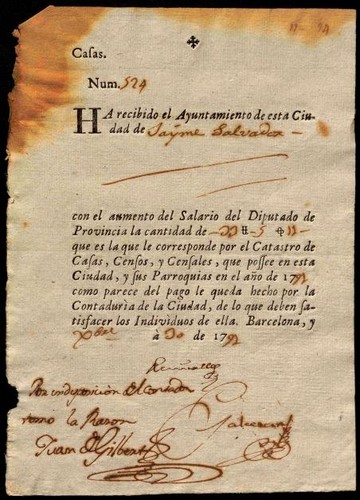 Casas.
Num. 524
HA recibido el Ayuntamiento de esta Ciu-
dad de Jayme Salvador
con el aumento del Salario del Diputado de
Provincia la cantidad de
que es la que le corresponde por el Catastro de
Casas, Censos, y Censales, que possee en esta
Ciudad, y sus Parroquias en el año de 1792
como parece del pago le queda hecho por la
Contaduria de la Ciudad, de lo que deben sa-
tisfacer los Individuos de ella. Barcelona, y
Xbre. à 30 de 1792
Por indisposicion del Contador
tomo la Razon
Juan Gilbert